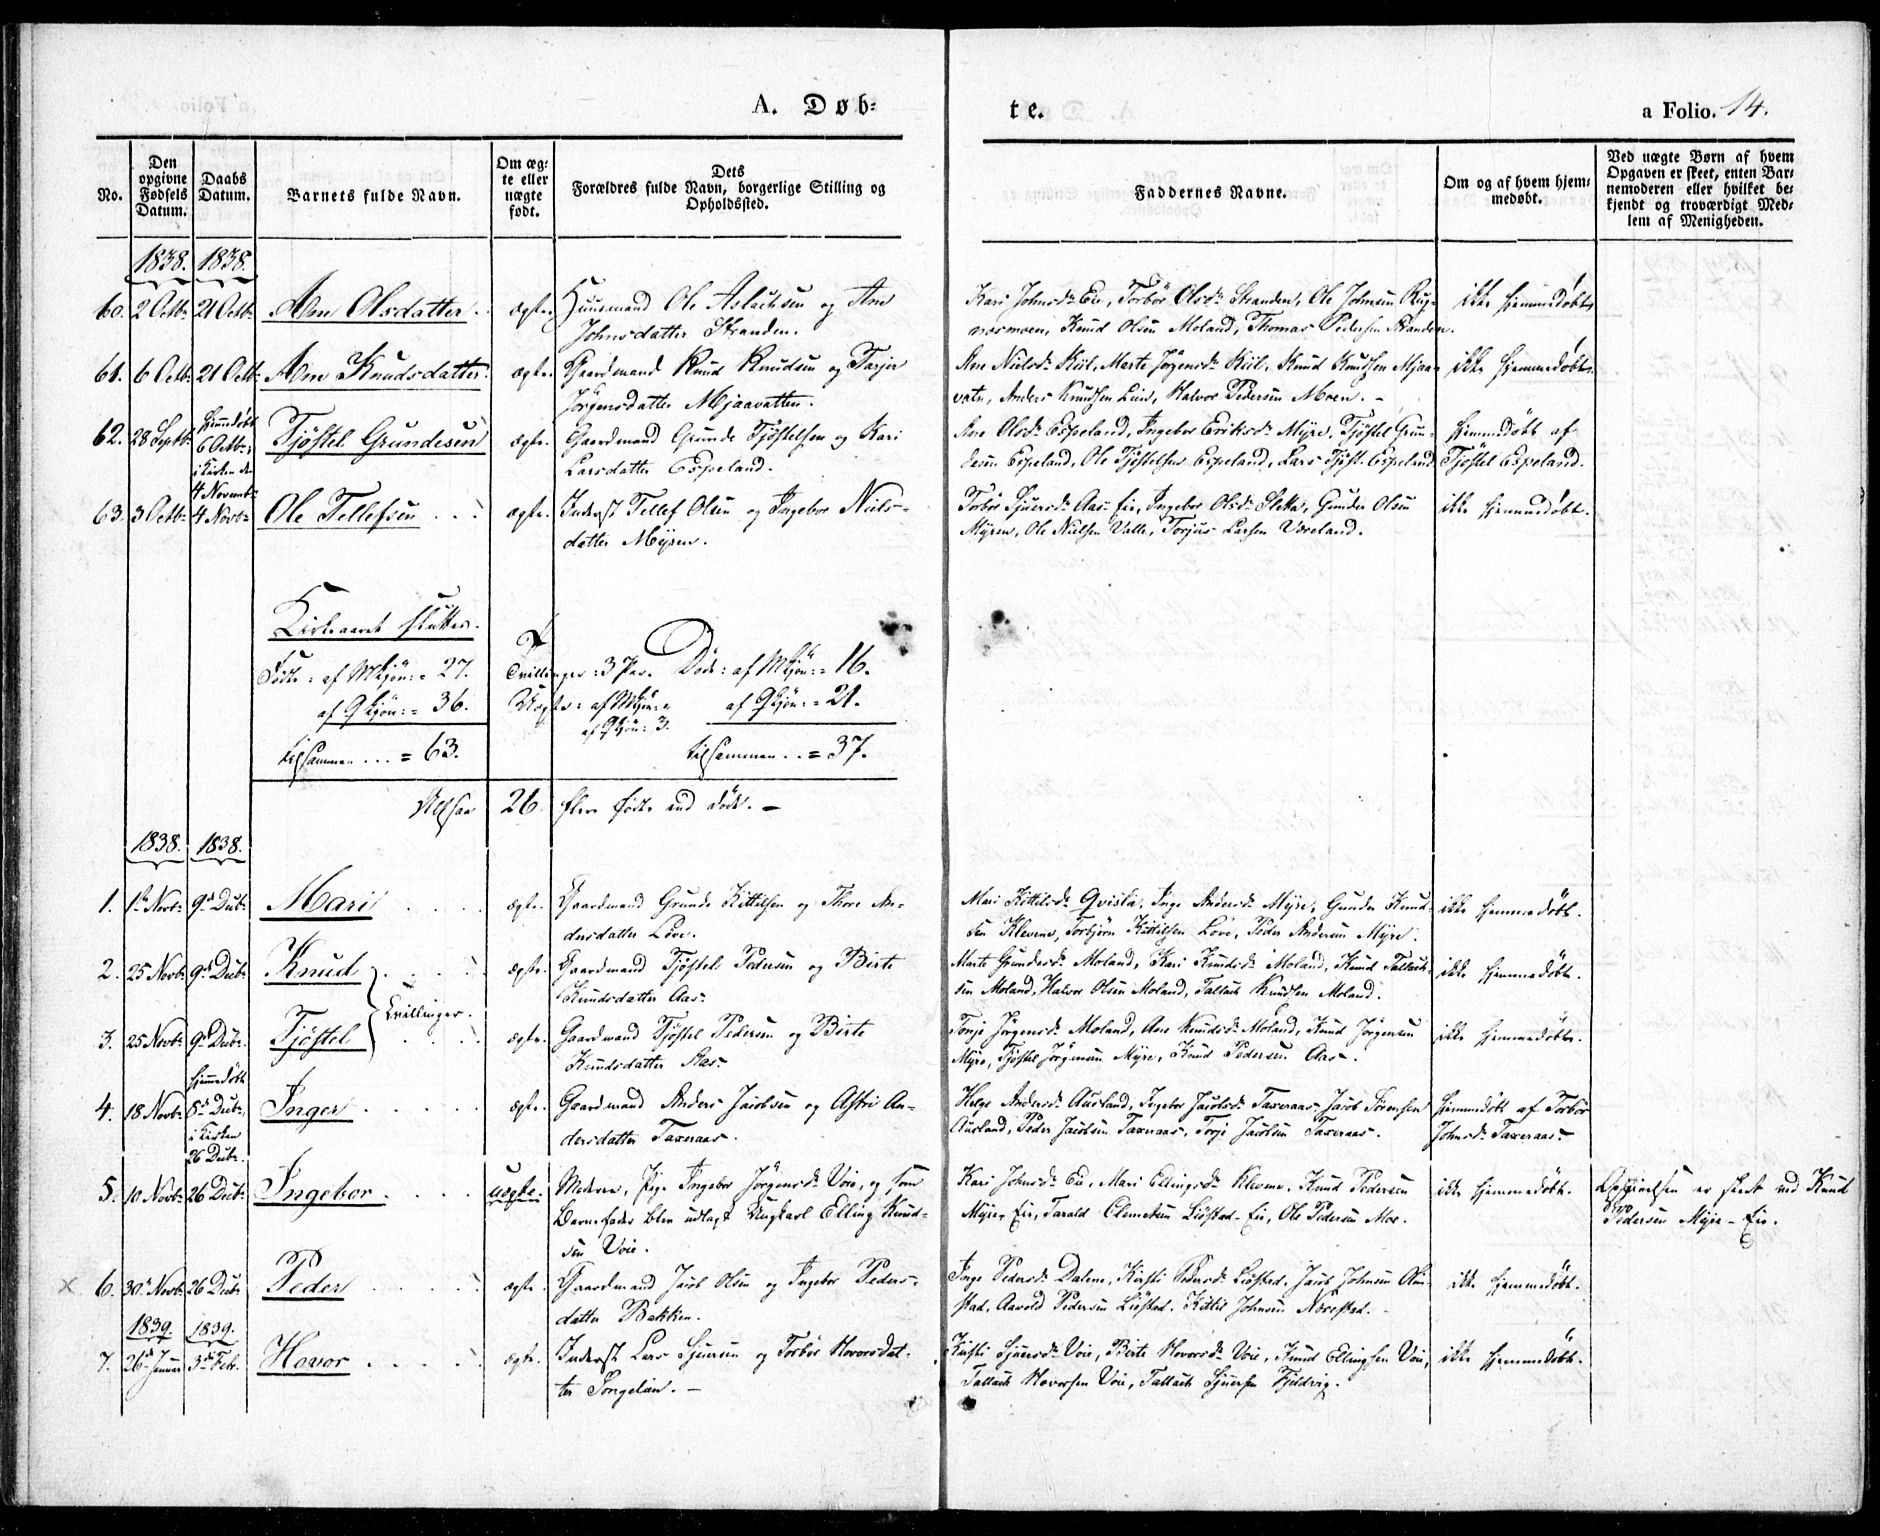 A. Døb-
te.
a Folio. 14.
No.
Den opgivne Fødsels Datum.
Daabs Datum.
Barnets fulde Navn.
Om ægte eller uægte født.
Dets Forældres fulde Navn, borgerlige Stilling og Opholdssted.
Faddernes Navne.
Om og af hvem hjemmedøbt.
Ved uægte Børn af hvem Opgaven er skeet, enten Barnemoderen eller hvilket bekjendt og troværdigt Medlem af Menigheden.
1838. 1838.
60. 2 Octbr 21 Octbr Ane Olsdatter. ægte. Huusmand Ole Aslachsen og Ane
Johnsdatter Stranden.
Kari Johnsdr Eie, Torbör Olsdr Stranden, Ole Johnsen Rug-
næsmoen, Knud Olsen Moland, Thomas Pedersen Stranden.
ikke hjemmedøbt.
61. 6 Octbr 21 Octbr Ane Knudsdatter. ægte. Gaardmand Knud Knudsen og Tarjer
Jörgensdatter Mjaavatten.
Ane Nielsdr Kiil, Marte Jörgensdr Kiil, Knud Knudsen Mjaa-
vatn, Anders Knudsen Lien, Halvor Pedersen Moen. -
ikke hjemmedøbt.
62. 28 Septbr Hjemmedøbt
6 Octbr,
i Kirken den
4 Novembr
Tjöstel Grundesen ægte. Gaardmand Grunde Tjöstelsen og Kari
Larsdatter Espeland.
Ane Olsdr Espeland, Ingebor Eriksdr Myre, Tjöstel Grun-
desen Espeland, Ole Tjöstelsen Espeland, Lars Tjöst. Espeland
hjemmedöbt af
Tjöstel Espeland.
63. 3 Octbr 4 Novbr Ole Tellefsen ... ægte. Inderst Tellef Olsen og Ingebor Niels-
datter Myren.
Torbör Sjursdr Aas-Eie, Ingebor Olsdr Sletta, Gunder Olsen
Myren, Ole Nielsen Valle, Torjus Larsen Væreland.
ikke hjemmedøbt.
Kirkeaaret slutter.
Födte: af Mkjön: = 27.
af Qkjön: = 36.
tilsammen ... = 63.
Tvillinger: 3 Par.
Uægte: af Mkjön: "
af Qkjön: 3.
Döde: af Mkjön: = 16.
af Qkjön: = 21.
tilsammen .. = 37.
Altsaa 26 flere födte end döde. -
1838. 1838.
1. 1te Novbr 9de Decbr Mari .... ægte. Gaardmand Grunde Kittilsen og Thore An-
dersdatter Löve.
Mari Kittilsdr Qvistá, Inge Andersdr Myre, Gunder Knud-
sen Klevene, Torbjörn Kittilsen Löve, Peder Andersen Myre.
ikke hjemmedöbt.
2. 25 Novbr 9de Decbr Knud .... ægte. Gaardmand Tjöstel Pedersen og Birte
Knudsdatter Aas.
Marte Gundersdr Moland, Kari Knudsdr Moland, Knud Tallach-
sen Moland, Halvor Olsen Moland, Tallach Knudsen Moland.
ikke hjemmedöbt.
Tvillinger.
3. 25 Novbr 9de Decbr Tjöstel .... ægte. Gaardmand Tjöstel Pedersen og Birte
Knudsdatter Aas.
Tonje Jörgensdr Moland, Ane Knudsdr Moland, Knud Jörgensen
Myre, Tjöstel Jörgensen Myre, Knud Pedersen Aas.
ikke hjemmedöbt.
4. 18 Novbr hjemmedöbt
8de Decbr,
i Kirken
26 Decbr.
Inger ..... ægte. Gaardmand Anders Jacobsen og Astri An-
dersdatter Taxeraas.
Helge Andersdr Ausland, Ingebor Jacobsdr Taxeraas, Jacob Sörensen
Ausland, Peder Jacobsen Taxeraas, Terje Jacobsen Taxeraas.
hjemmedöbt af Torbör
Johnsdr Taxeraas.
5. 10 Novbr 26 Decbr Ingebor .... uægte. Moderen, Pige Ingebor Jörgensdr Voie, og som
Barnefader blev udlagt Ungkarl Elling Knud-
sen Voie.
Kari Johnsdr Eie, Mari Ellingsdr Klevene, Knud Pedersen
Myre-Eie, Tarald Clemetsen Liöstad-Eie, Ole Pedersen Moe.
ikke hjemmedöbt.
Opgivelsen er skeet ved Knud
Pedersen Myre-Eie.
6. 30te Novbr 26 Decbr Peder ..... ægte. Gaardmand Jacob Olsen og Ingebor Peders-
datter Bakken.
Inge Pedersdr Dalene, Kirsti Pedersdr Liöstad, Jacob Johnsen
stad, Aavold Pedersen Liöstad, Kittil Johnsen Norestad.
ikke hjemmedöbt.
1839. 1839.
7. 26de Januar 3de Febr. Hovor ..... ægte. Inderst Lars Sjursen og Torbör Hovorsdat-
ter Songelien. -
Kirsti Sjursdr Voie, Birte Hovorsdr Voie, Knud Ellingsen Voie,
Tallach Hovorsen Voie, Tallach Sjursen Fjeldvig.
ikke hjemmedöbt.